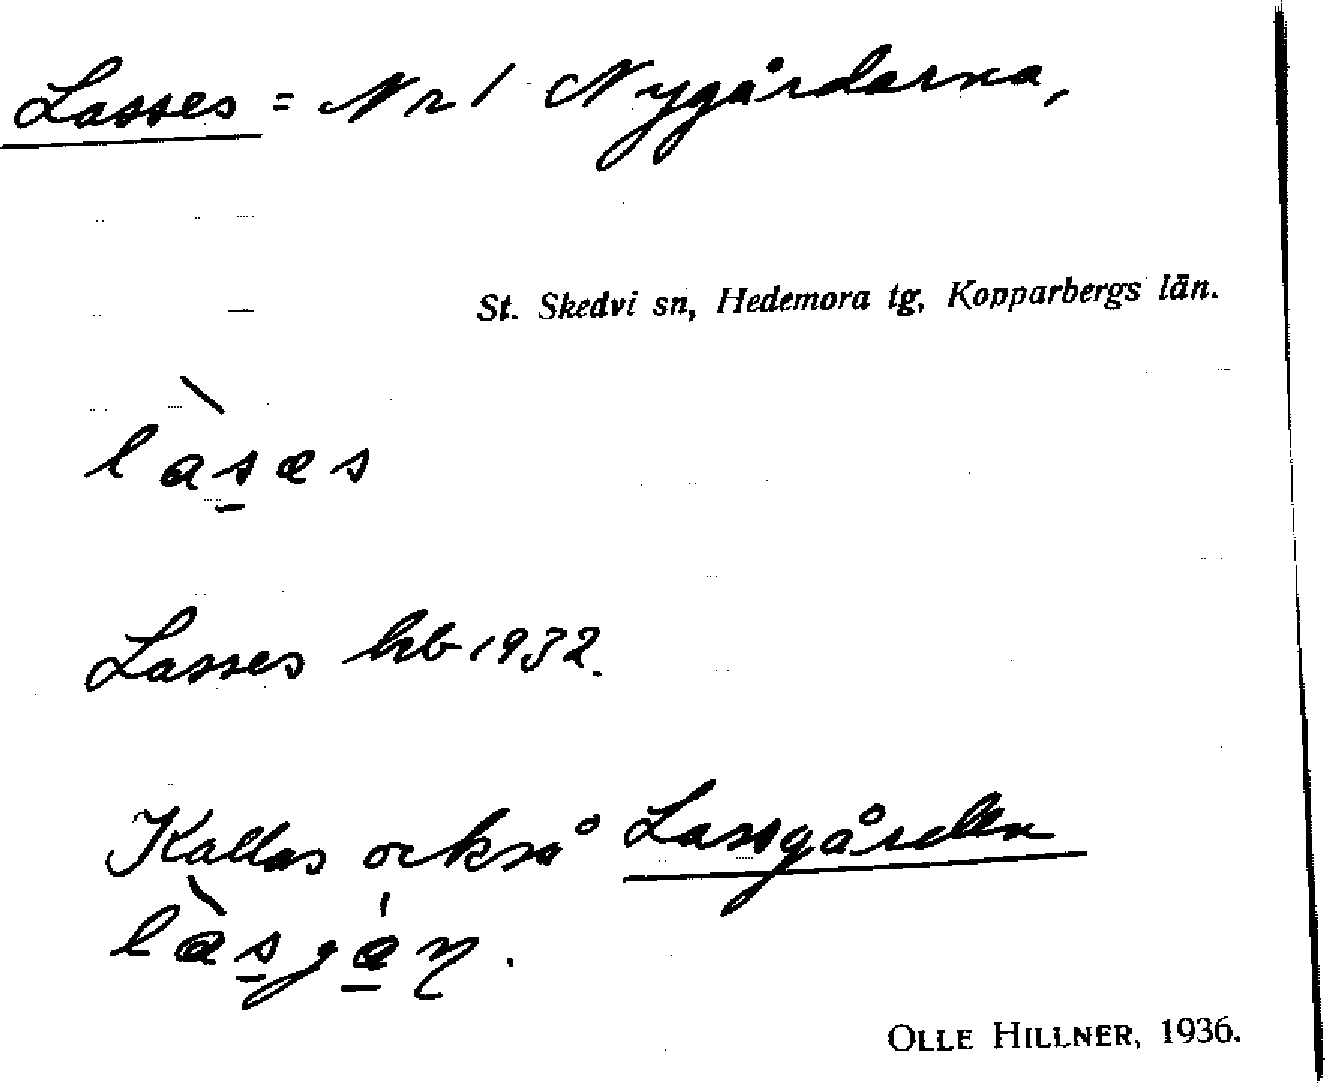 Lasses = Nr 1 Nygårdarna,
St. Skedvi sn, Hedemora tg, Kopparbergs län.
làs̲æs
Lasses hb 1932.
Kallas också Lassgården
làs̲gá̲ɳ.
OLLE HILLNER, 1936.